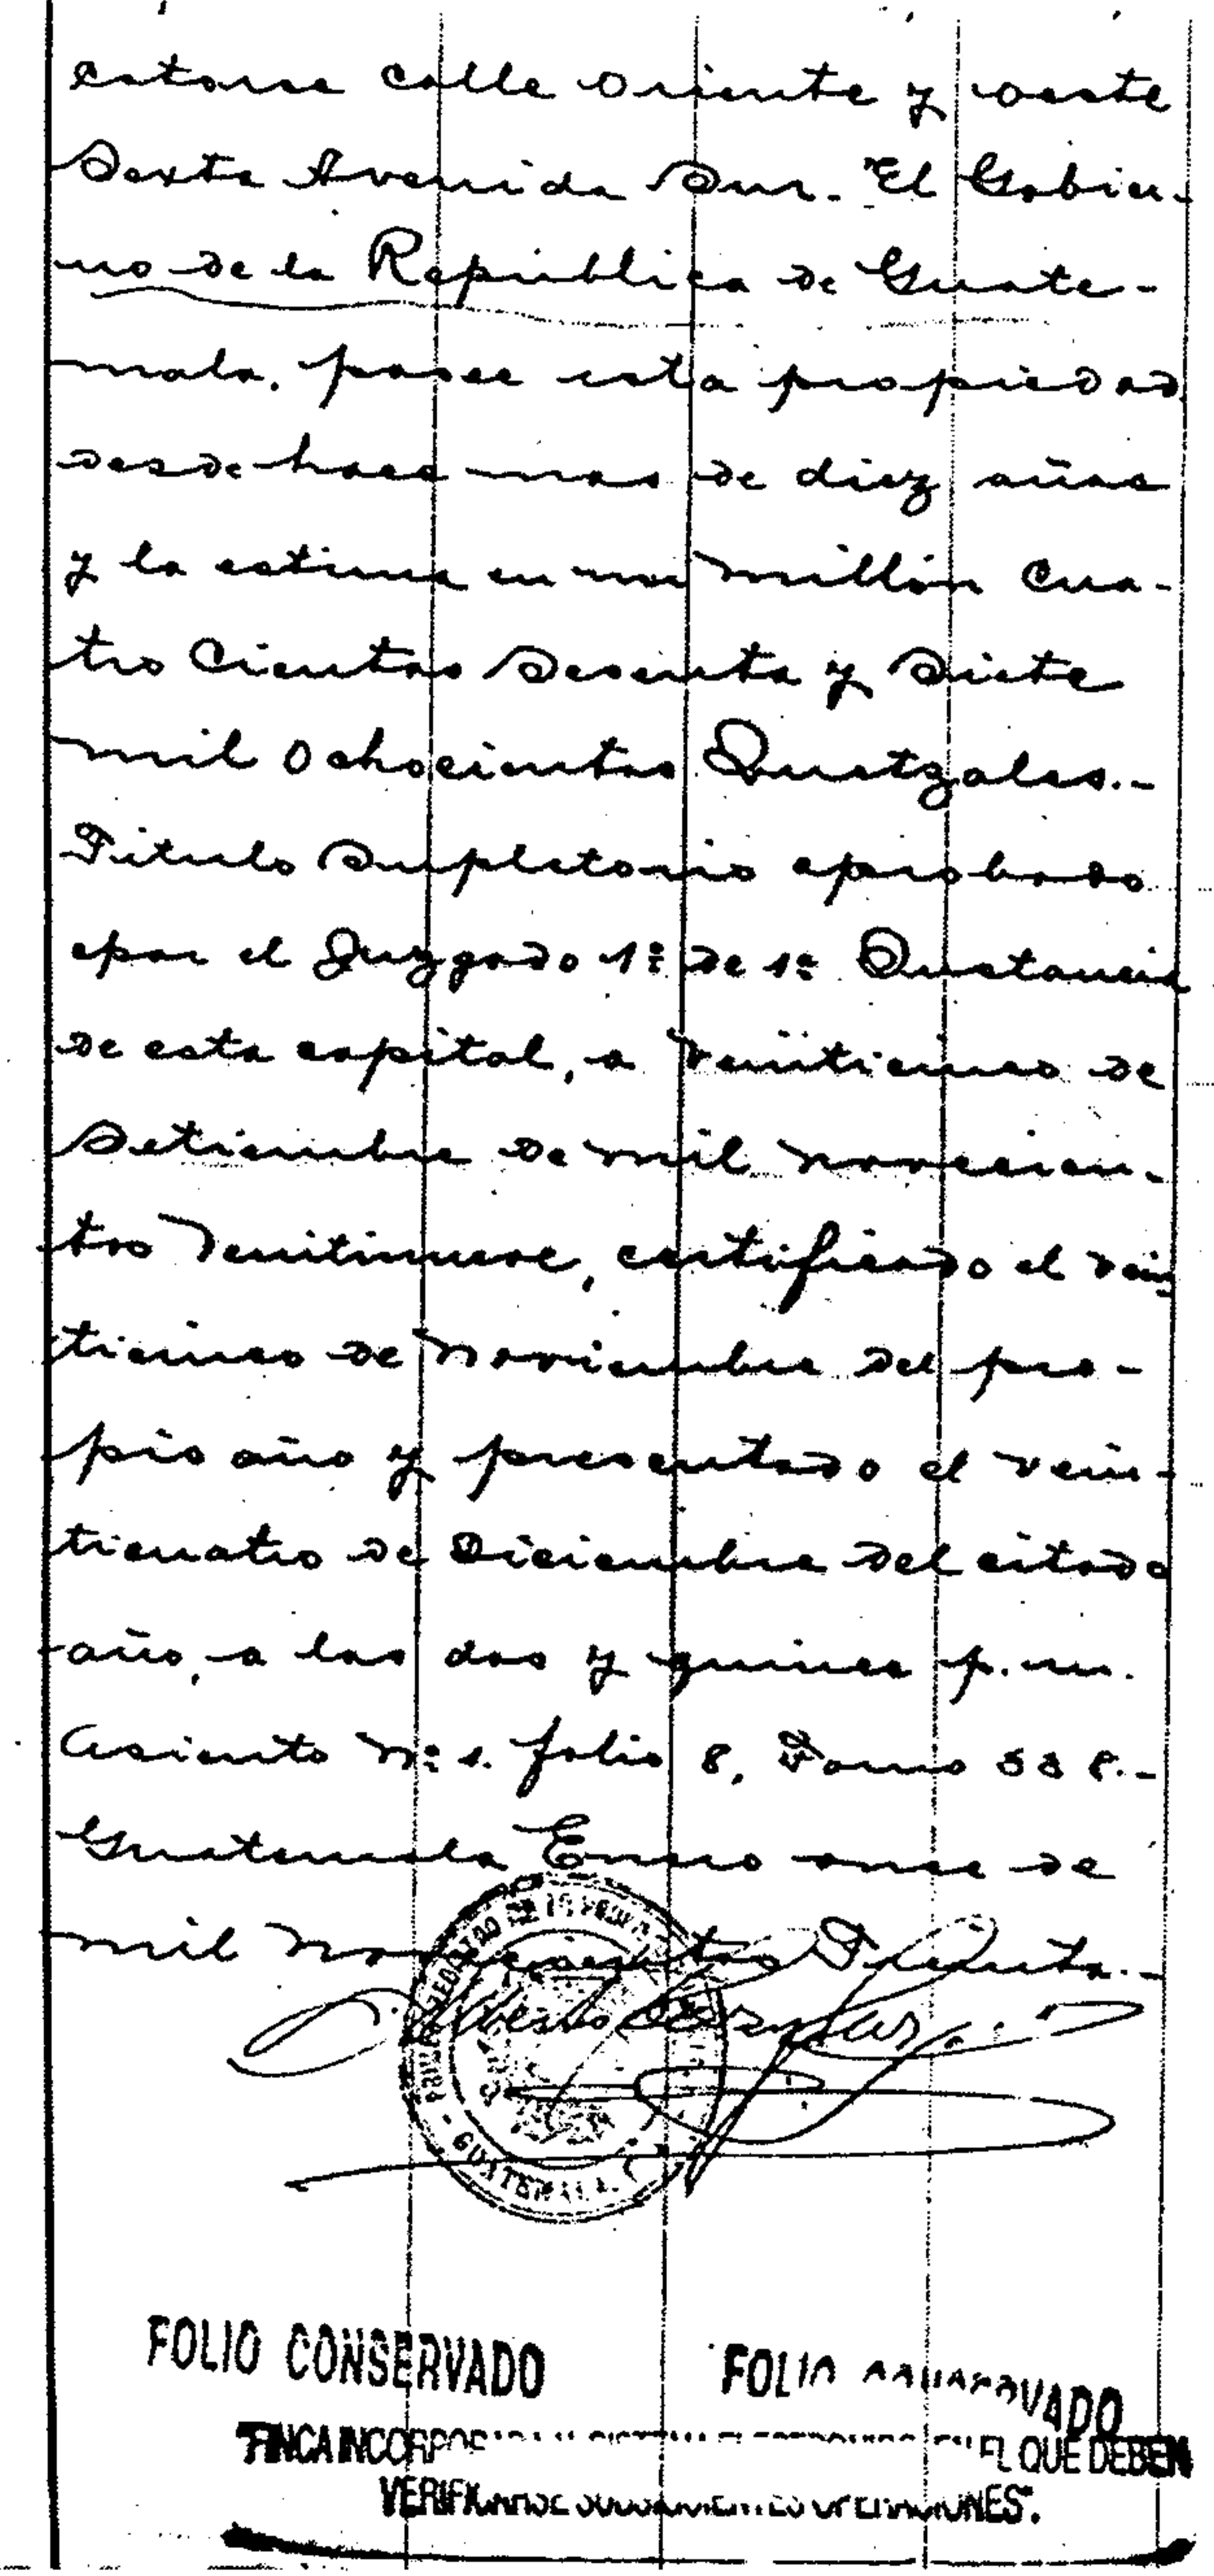 catorse calle oriente y oeste
Sexta Avenida Sur. El Gobier-
no de la República de Guate-
mala. posee esta propiedad
desde hace mas de diez años
y la estima en un millón cua-
tro cientos sesenta y siete
mil ochocientos Quetzales.-
Titulo Supletorio aprobado
por el Juzgado 1º de 1ª Instancia
de esta capital, a veinticinco de
Setiembre de mil novecien-
tos veintinueve, certificado el vein
ticinco de Noviembre del pro-
pio año y presentado el vein-
ticuatro de Diciembre del citado
año, a las dos y quince p.m.
Asiento Nº 1. folio 8, Tomo 338.-
Guatemala Enero once de
mil novecientos Treinta.-
GUATEMALA
FOLIO CONSERVADO FOLIO CONSERVADO
FINCA INCORPORADA AL SISTEMA ELECTRONICO EN EL QUE DEBEN
VERIFICARSE OPERACIONES.